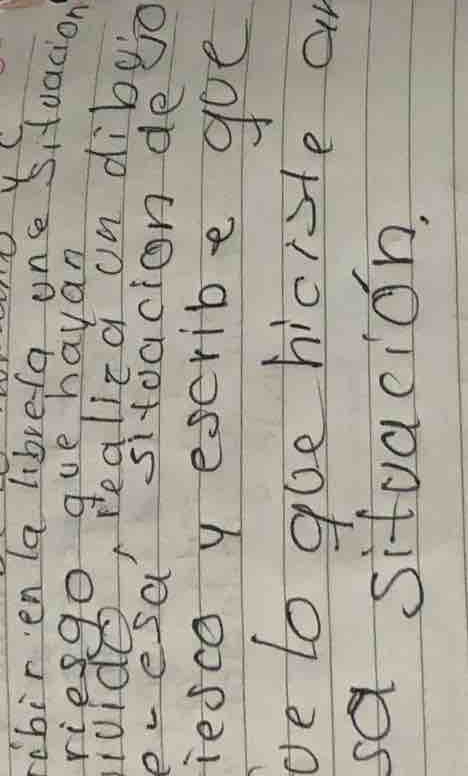 ribir en la libreta une situacion
riesgo que hayan
vivido, realiza un dibujo
e- esa situacion de
iesco y escribe que
ve lo que hiciste an
sa situación.